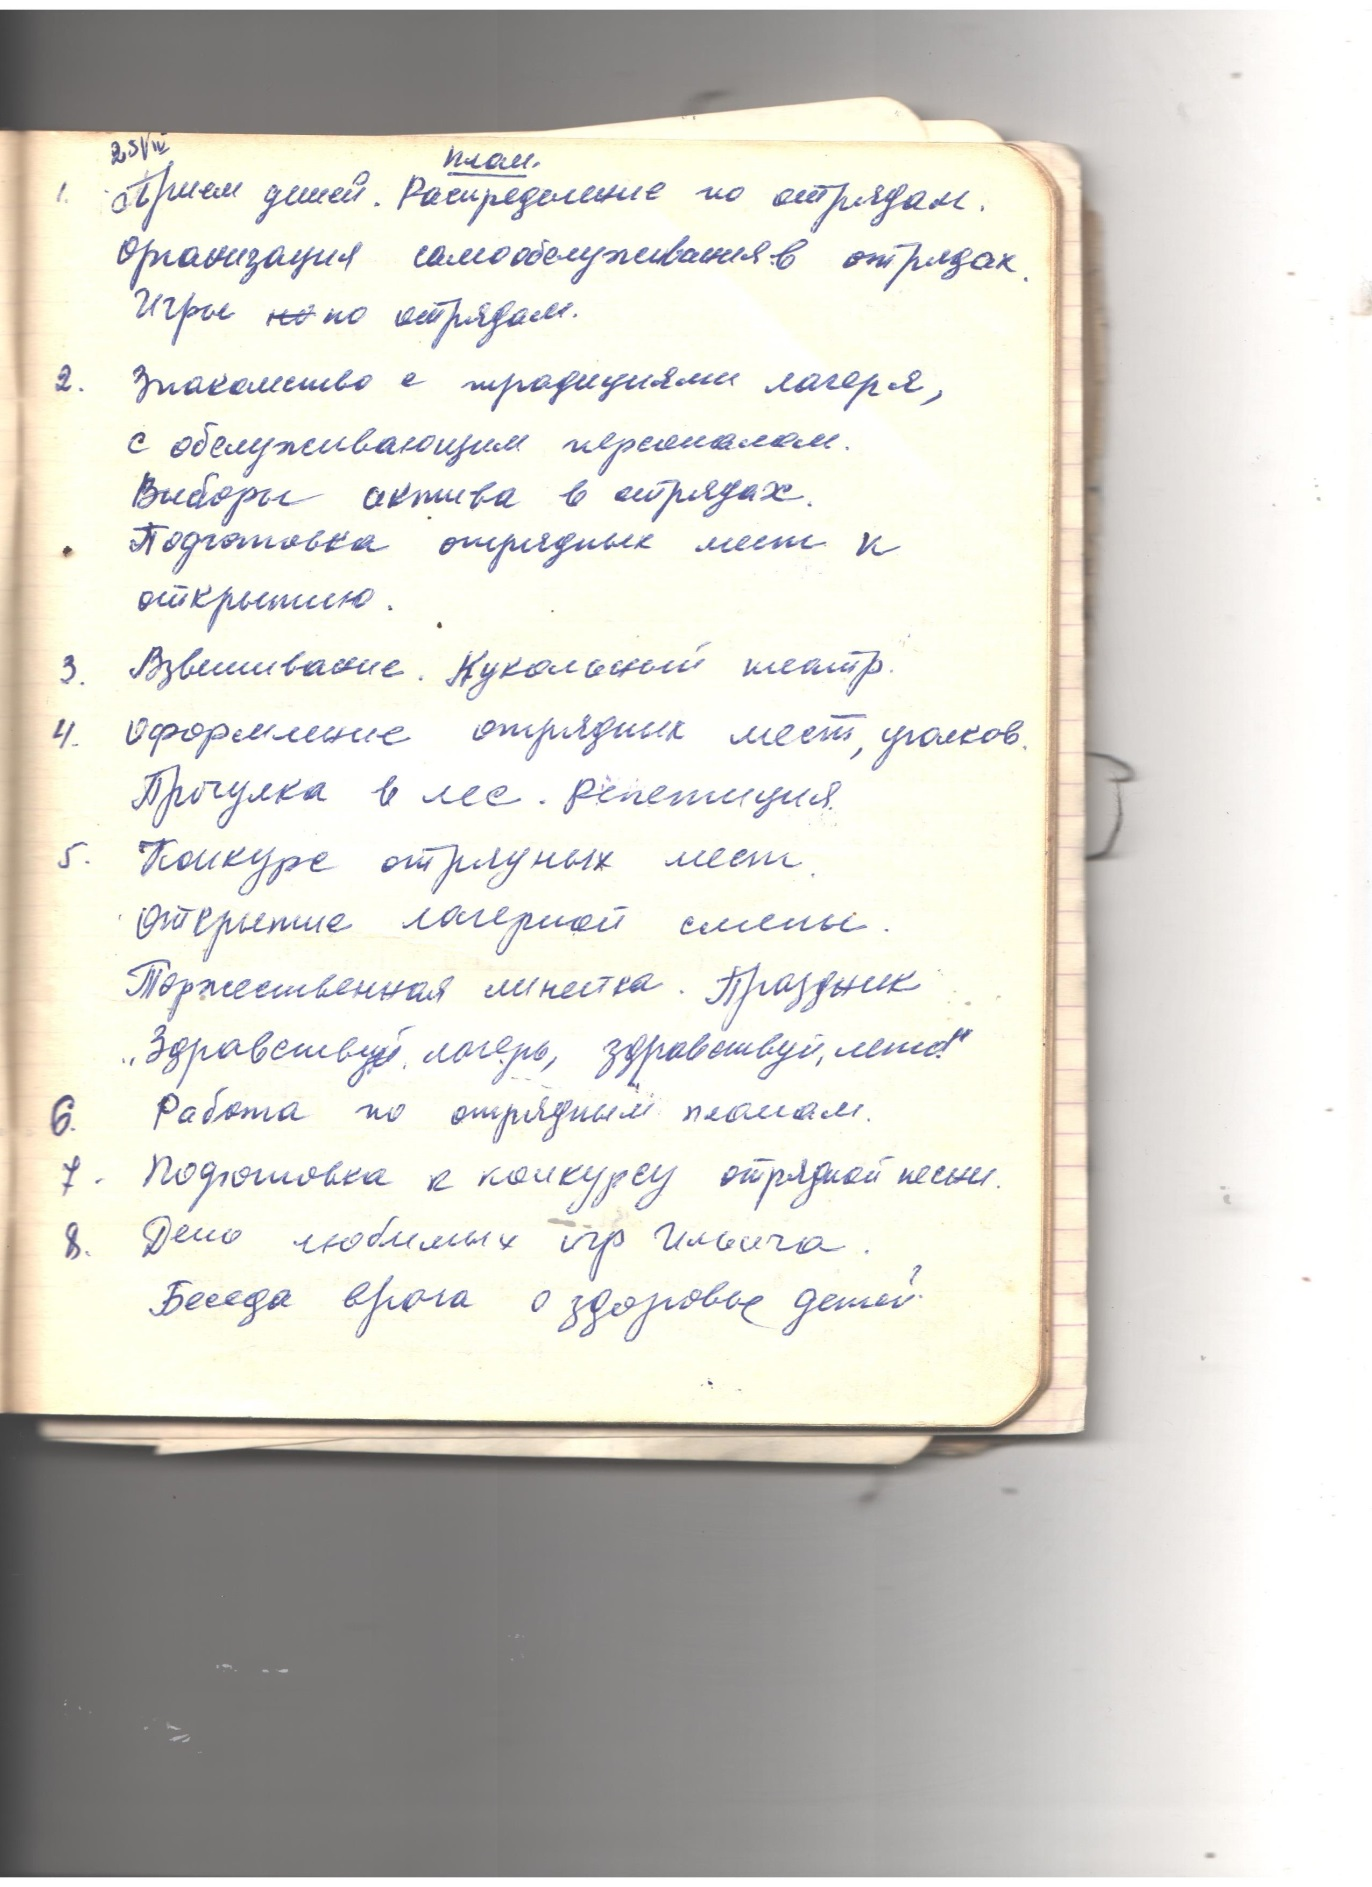 План.
1. Прием детей. Распределение по отрядам.
Организация самообслуживания в отрядах.
Игры но по отрядам.
2. Знакомство с традициями лагеря,
с обслуживающим персоналом.
Выборы актива в отрядах.
Подготовка отрядных мест к
открытию.
3. Взвешивание. Кукольный театр.
4. Оформление отрядных мест, уголков.
Прогулка в лес. Репетиция.
5. Конкурс отрядных мест.
Открытие лагерной смены.
Торжественная линейка. Праздник
„Здравствуй, лагерь, здравствуй, лето!"
6. Работа по отрядным планам.
7. Подготовка к конкурсу отрядной песни.
8. День любимых игр Ильича.
Беседа врача о здоровье детей